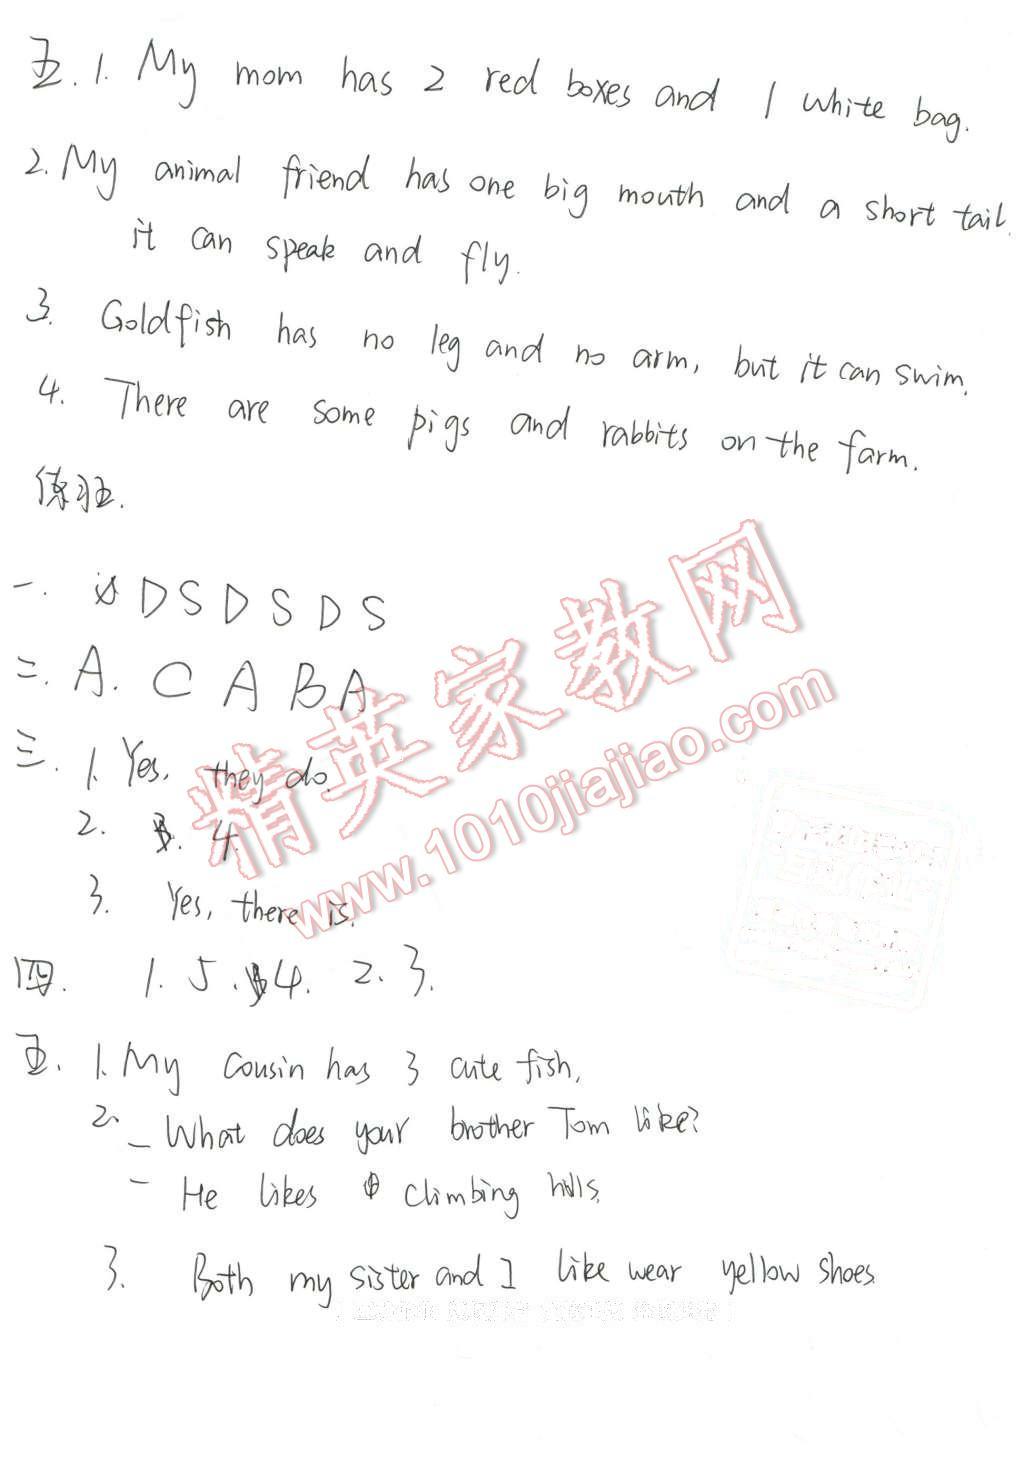 五.1. My mom has 2 red boxes and 1 white bag.
2. My animal friend has one big mouth and a short tail.
it can speak and fly.
3. Goldfish has no leg and no arm, but it can swim.
4. There are some pigs and rabbits on the farm.
练习五.
一. D S D S D S
二. A. C A B A
三. 1. Yes, they do.
2. 4.
3. Yes, there is.
四. 1. 5. 4. 2. 3.
五. 1. My cousin has 3 cute fish.
2. - What does your brother Tom like?
- He likes climbing hills.
3. Both my sister and I like wear yellow shoes.
精英家教网
www.1010jiajiao.com